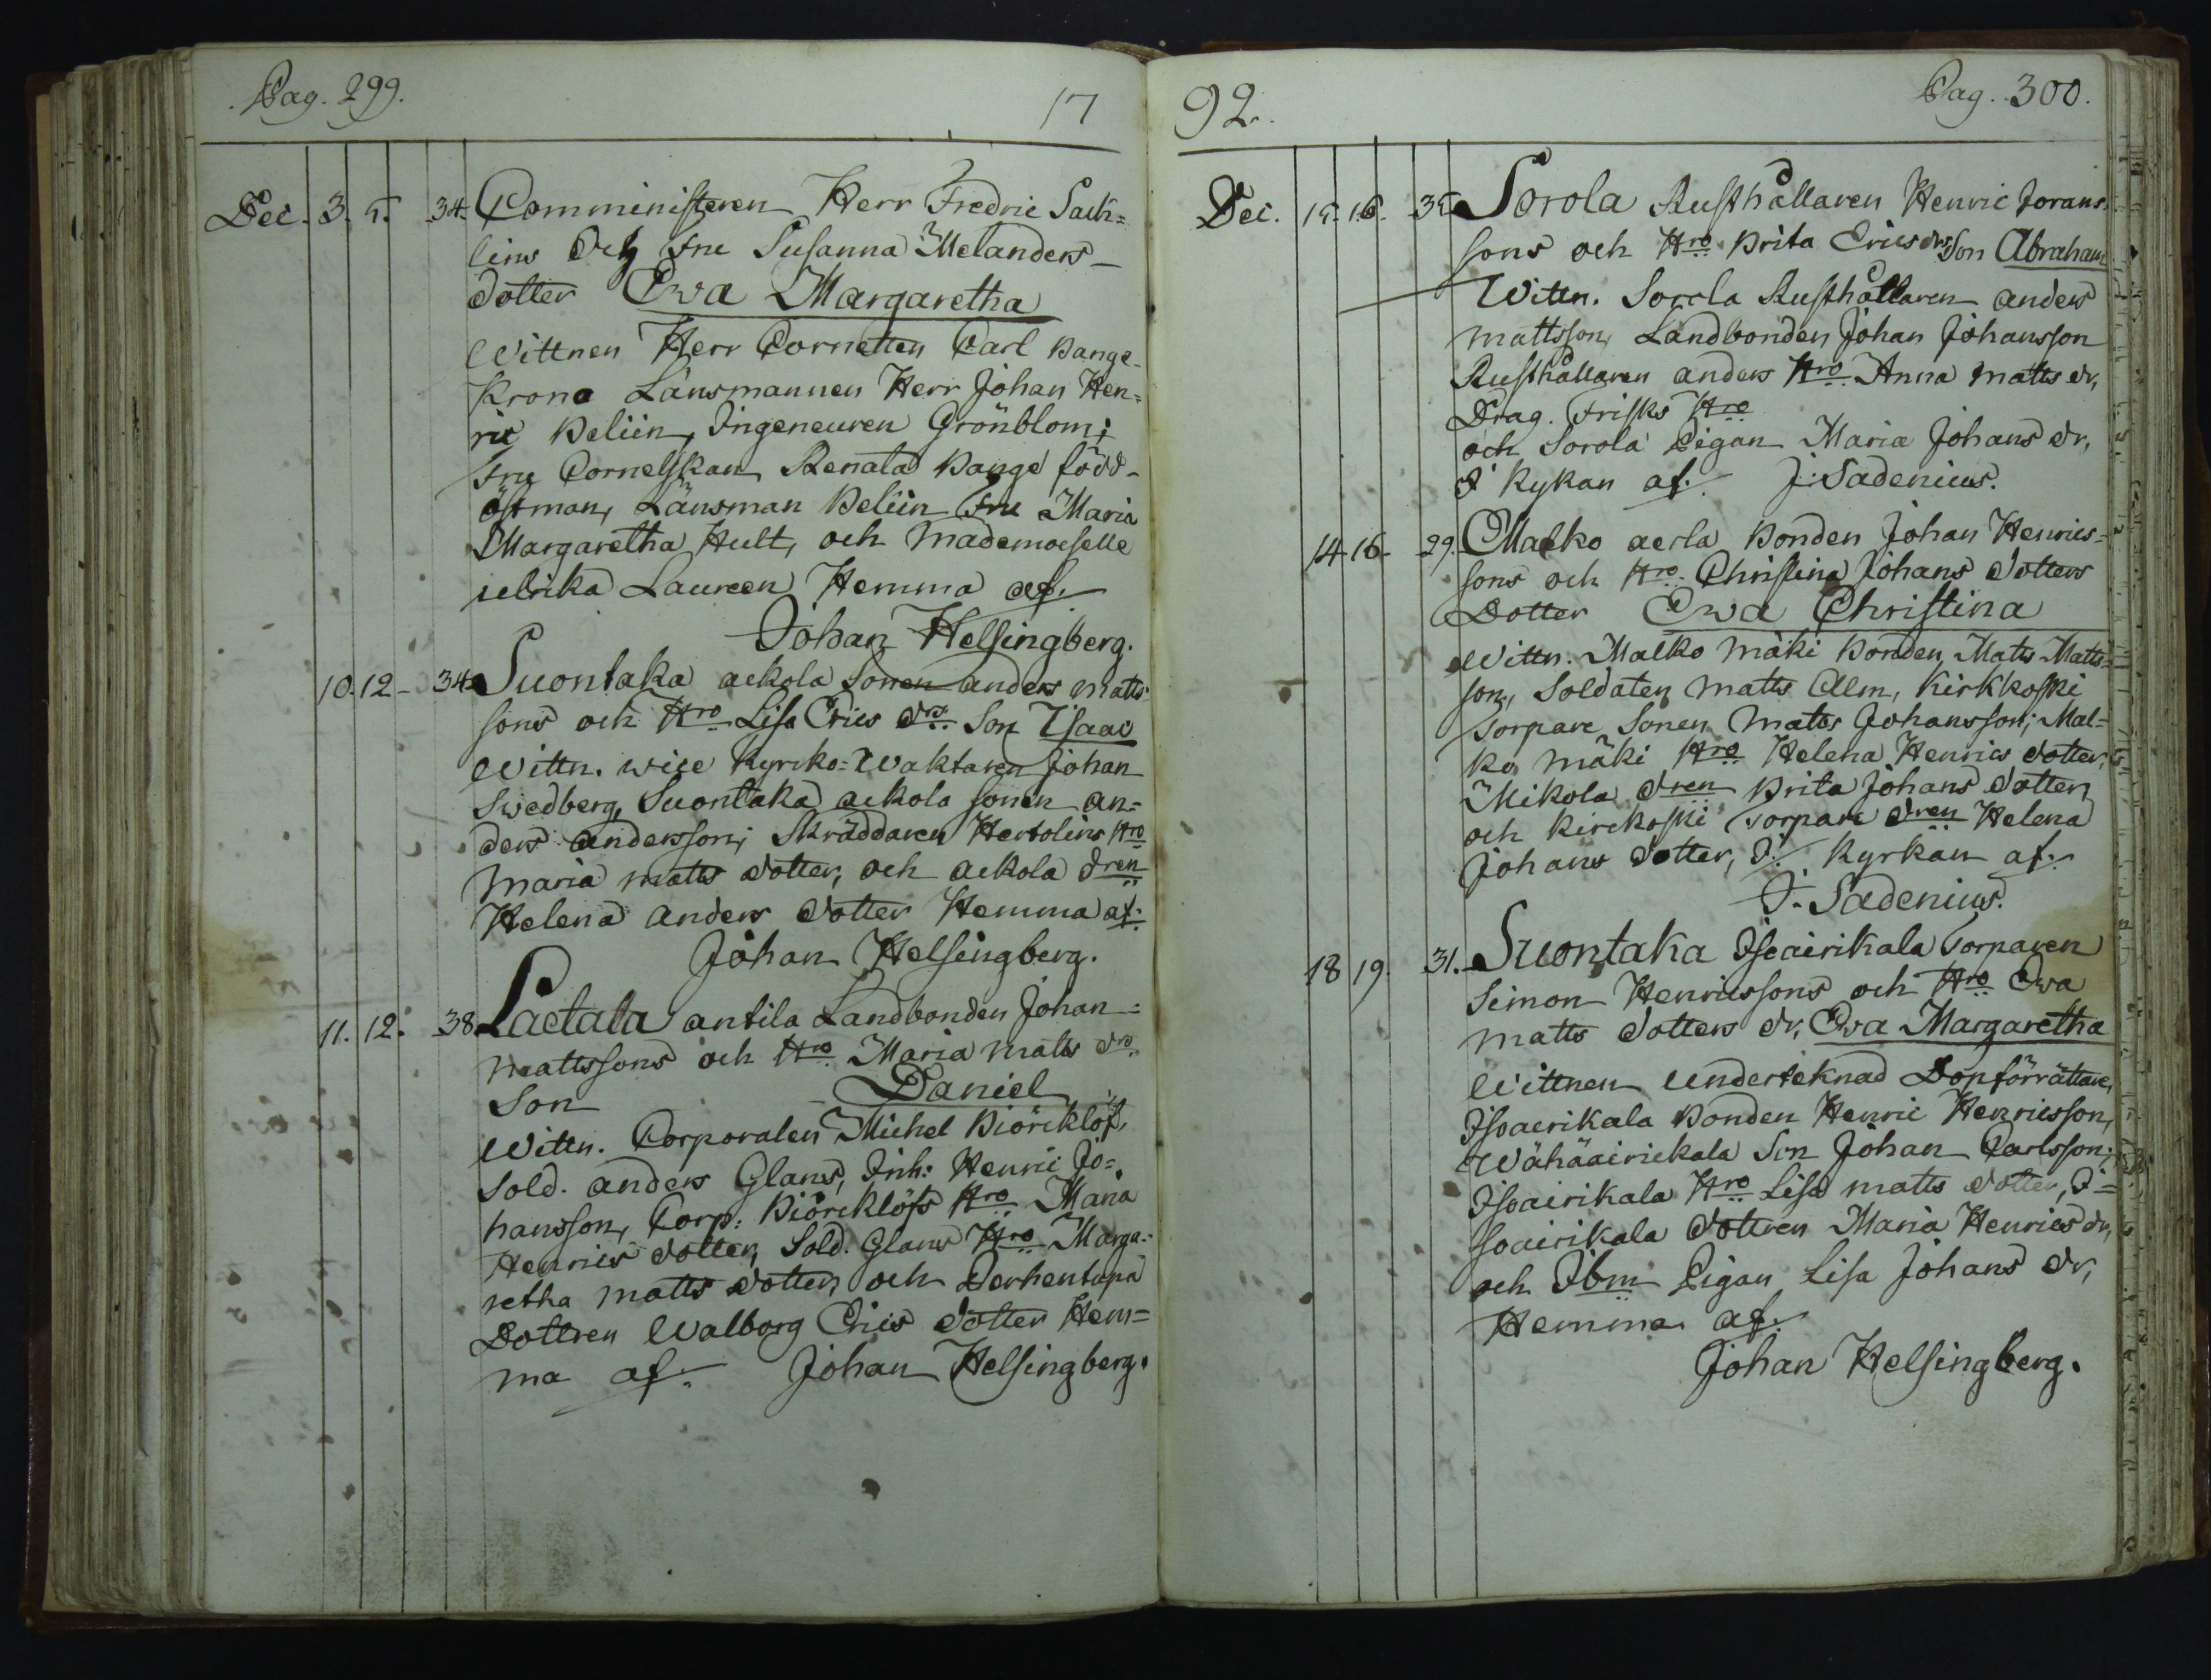 Pag. 299.
17
Dec. 3. 5. 34. Comministeren Herr Fredric Sack=
lins Och Fru Susanna Melanders
dotter Ewa Margaretha
Wittnen Herr Cornetten Carl Bange
Krono Länsmannen Herr Johan Hen=
ric Beliin, Ingeneuren Grönblom;
Fru Cornetskan Renata Bange född
östman, Länsman Beliin Fru Maria
Margaretha Hult, och Mademoiselle
ulrika Laureen Hemma af.
Johan Helsingberg.
10. 12 - 34. Suontaka ackola Sonen anders matts
sons och Hro Lisa Erics drs Son Isaac
Wittn. wice Kyrko=Waktaren Johan
Swedberg, Suontaka ackola sonen an=
ders andersson; Skräddaren Hertolins Hro
Maria matts dotter, och ackola dren
Helena anders dotter Hemma af.
Johan Helsingberg.
11. 12. 38 Lactala antila Landbonden Johan
mattssons och Hro Maria matts drs
Son Daniel
Wittn. Corporalen Michel Biörcklöf,
Sold. anders Glans, Inh: Henric Jo=
hansson, Corp: Biörcklöfs Hro Maria
Henrics dotter, Sold. Glans Hro Marga=
retha matts dotter, och Perhentupa
Dottren Walborg Erics dotter Hem=
ma af. Johan Helsingberg.
92.
Pag. 300.
Dec. 15. 16. 35. Sorola Rusthållaren Henric Jorans
sons och Hro Brita Erics drs Son Abraham
Wittn. Sorola Rusthållaren anders
mattsson, Landbonden Johan Johansson
Rusthållaren anders Hro Anna matts dr,
Drag. Frisks Hro
och Sorola Pigan Maria Johans dr,
I Kykan af. J: Sadenius.
14 16 - 29. Malko aerla Bonden Johan Henrics=
sons och Hro Christina Johans dotters
Dotter Ewa Christina
Wittn. Malko mäki Bonden Matts Matts=
son, Soldaten matts Alm, Kirkkoski
torpare Sonen Matts Johansson; Mal=
ko mäki Hro Helena Henrics dotter,
Mikola dren Brita Johans dotter,
och Kirckoski torpare dren Helena
Johans dotter, I Kyrkan af.
J. Sadenius.
18 19. 31. Suontaka Isoairikala torparen
Simon Henricssons och Hro Ewa
matts dotters dr, Ewa Margaretha
Wittnen underteknad Dopförrättare,
Isoaerikala Bonden Henric Henricsson,
Wähääirickala Son Johan Carlsson;
Isoairikala Hro Lisa matts dotter, I=
soairikala dottren Maria Henrics dr,
och Ibm Pigan Lisa Johans dr,
Hemma af.
Johan Helsingberg.